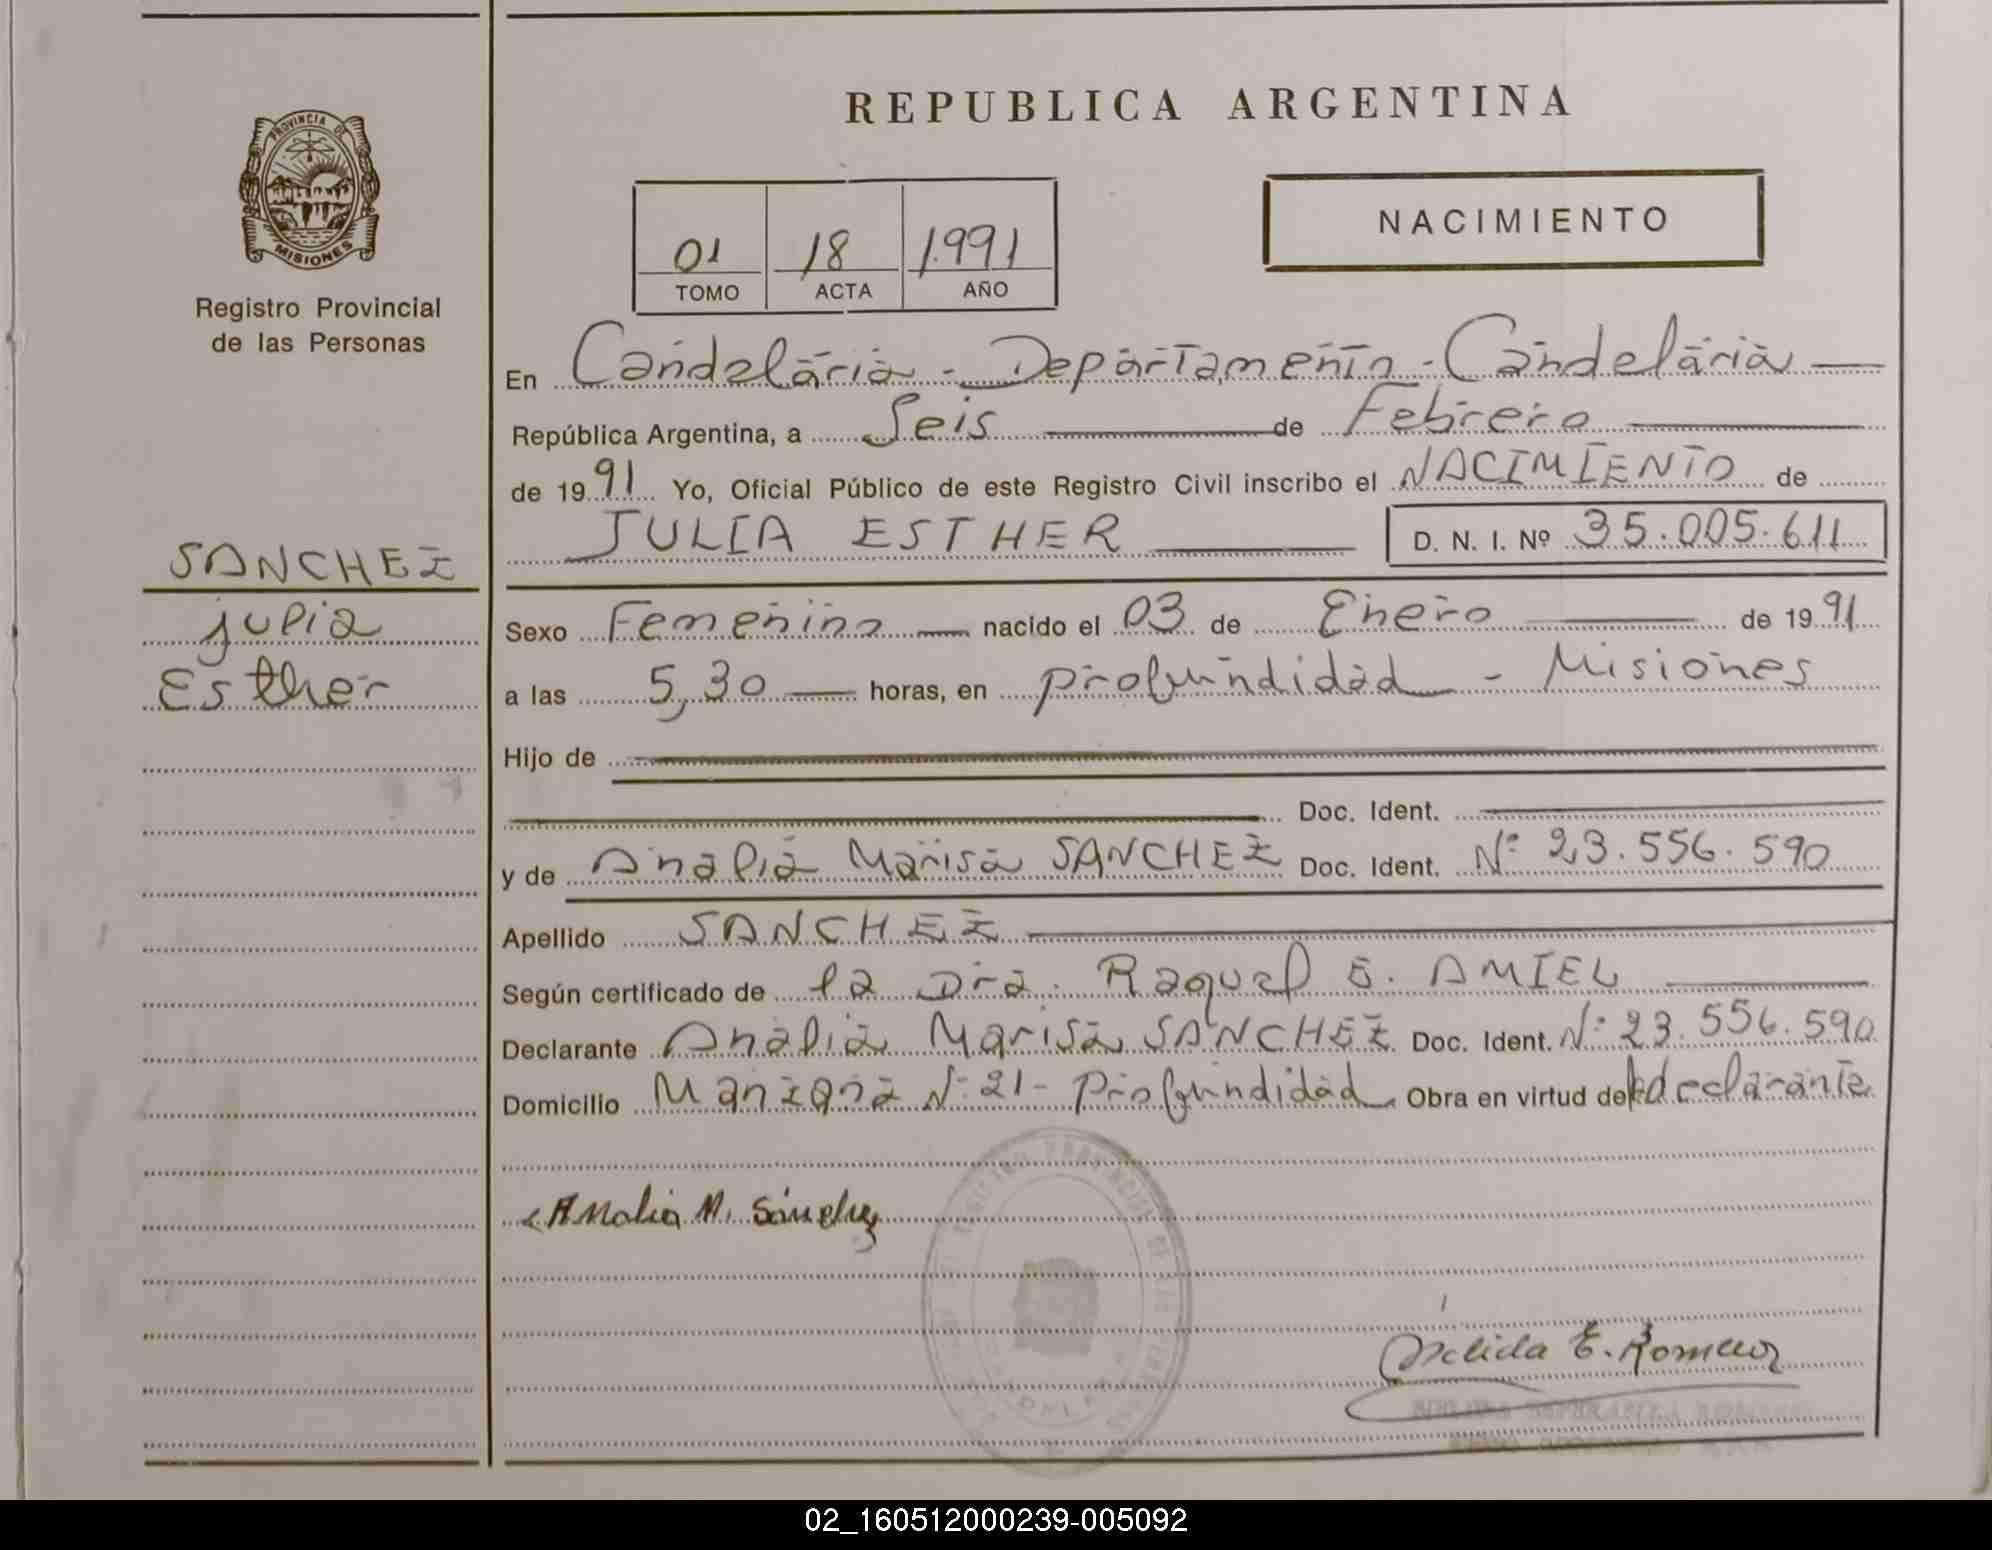 REPUBLICA ARGENTINA
PROVINCIA DE
MISIONES
Registro Provincial
de las Personas
NACIMIENTO
01 18 1.991
TOMO ACTA AÑO
En Candelaria - Departamento - Candelaria
República Argentina, a Seis de Febrero
de 1991 Yo, Oficial Público de este Registro Civil inscribo el NACIMIENTO de
JULIA ESTHER D. N. I. Nº 35.005.611
SANCHEZ
Julia
Esther
Sexo Femenino nacido el 03 de Enero de 1991
a las 5,30 horas, en Profundidad - Misiones
Hijo de
Doc. Ident.
y de Analia Marisa SANCHEZ Doc. Ident. Nº 23.556.590
Apellido SANCHEZ
Según certificado de la Dra. Raquel E. AMIEL
Declarante Analia Marisa SANCHEZ Doc. Ident. Nº 23.556.590
Domicilio Manzana Nº 21 - Profundidad Obra en virtud de declarante
Analia M. Sánchez
Nelida E. Romero
02_160512000239-005092